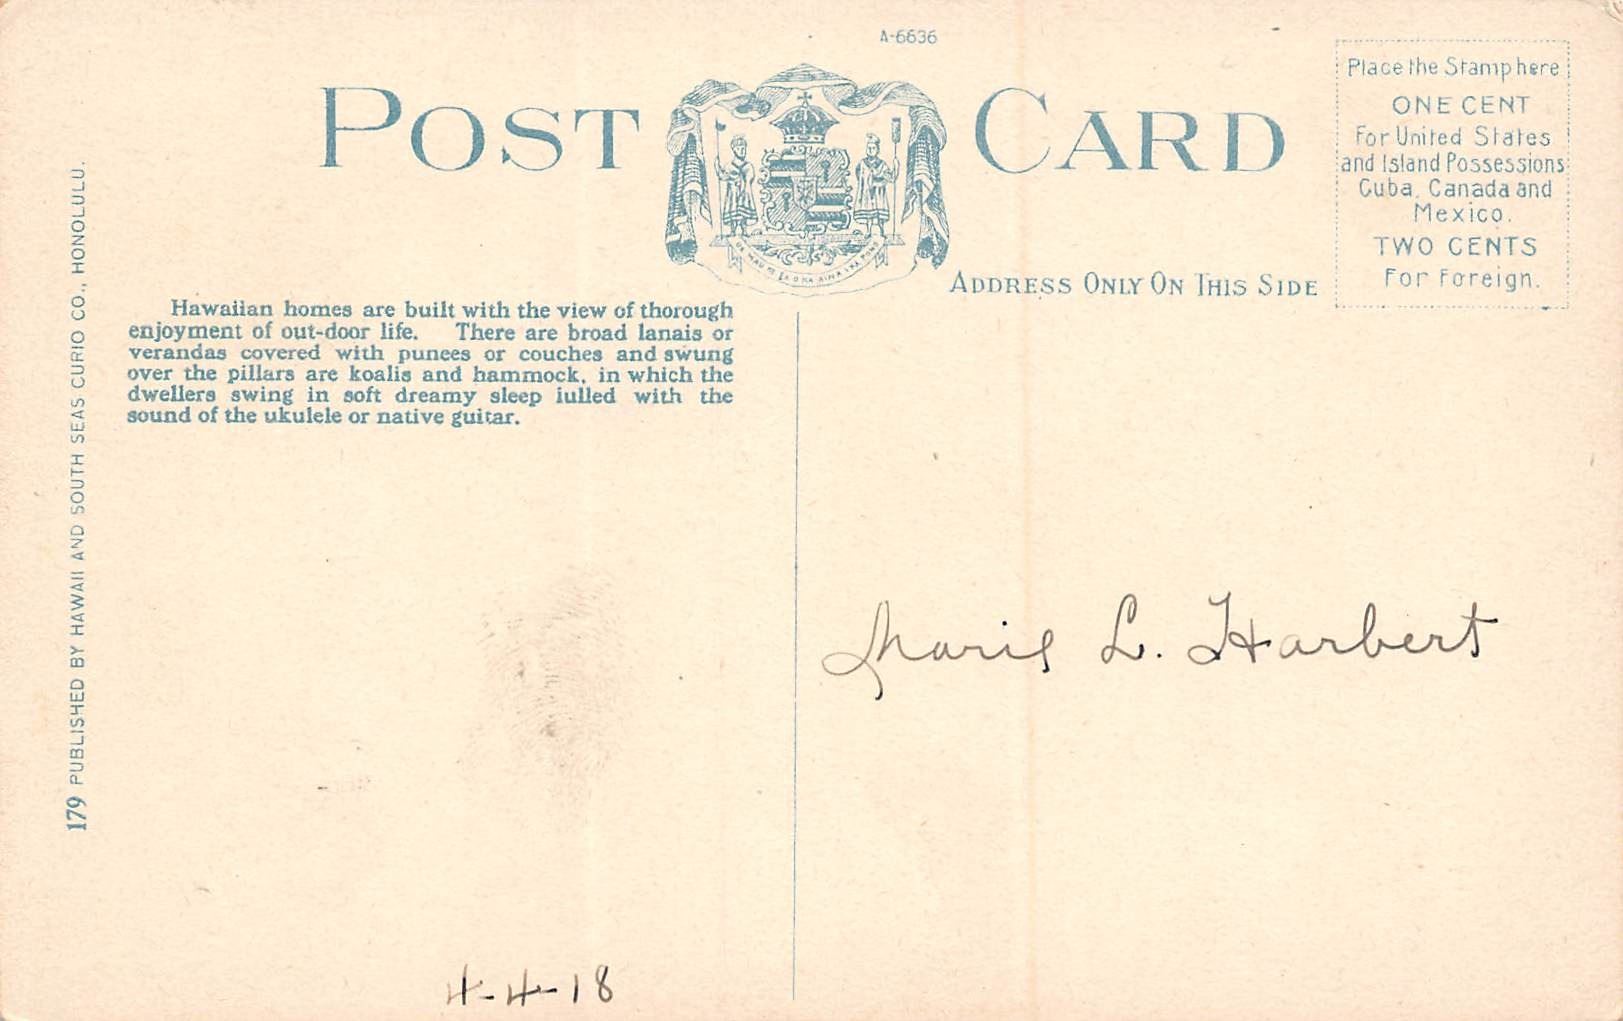 A-6636
POST CARD
UA MAU KE EA O KA AINA I KA PONO
Place the Stamp here
ONE CENT
For United States
and Island Possessions
Cuba, Canada and
Mexico.
TWO CENTS
For Foreign.
ADDRESS ONLY ON THIS SIDE
Hawaiian homes are built with the view of thorough
enjoyment of out-door life. There are broad lanais or
verandas covered with punees or couches and swung
over the pillars are koalis and hammock, in which the
dwellers swing in soft dreamy sleep iulled with the
sound of the ukulele or native guitar.
179 PUBLISHED BY HAWAII AND SOUTH SEAS CURIO CO., HONOLULU.
Marie L. Harbert
4-4-18